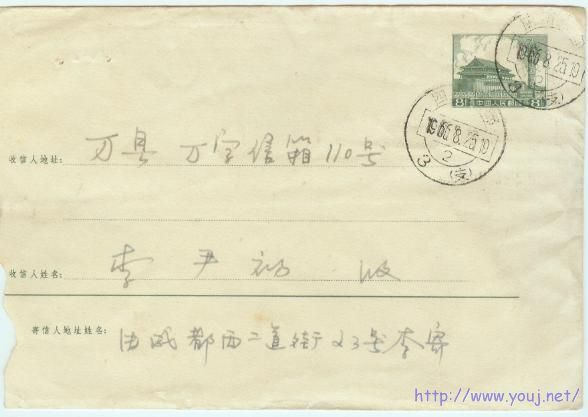 8 中国人民邮政 8
1966.8.25.19
2
3 (支)
四川
1966.8.25.19
2
3 (支)
收信人地址: 万县 万字信箱110号
收信人姓名: 李尹 收
寄信人地址姓名: 由成都西二道街23号李寄
http://www.youj.net/